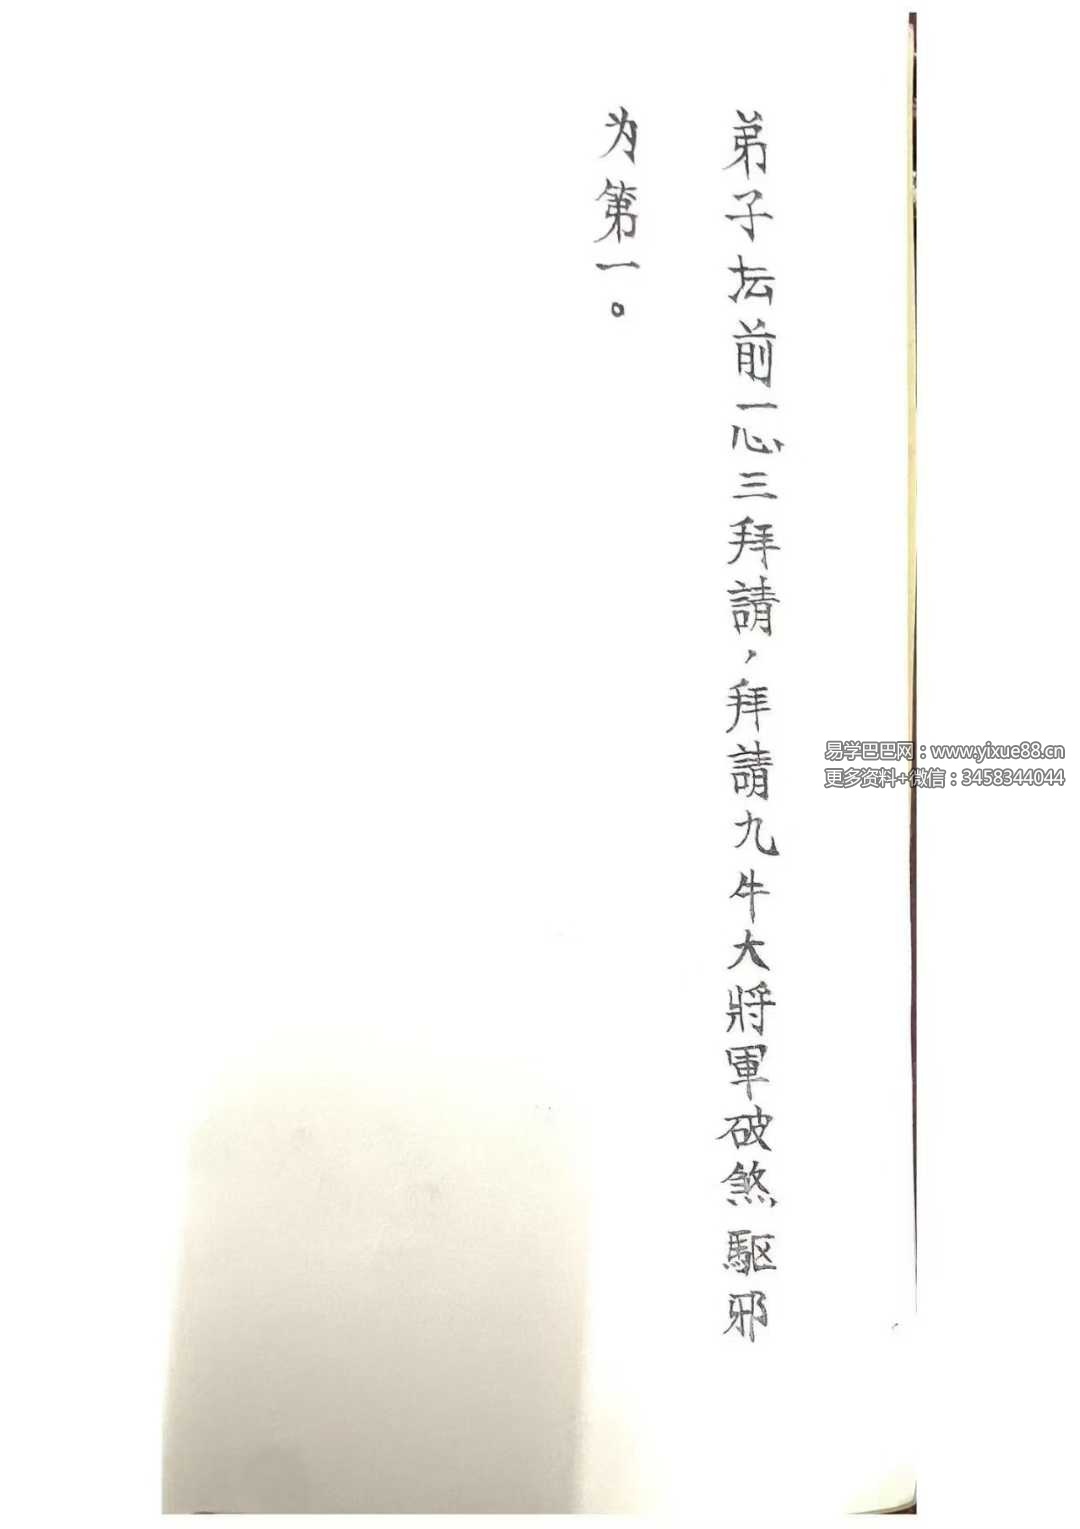 弟子坛前一心三拜請，拜請九牛大將軍破煞駆邪
为第一。
易学巴巴网：www.yixue88.cn
更多资料+微信：3458344044